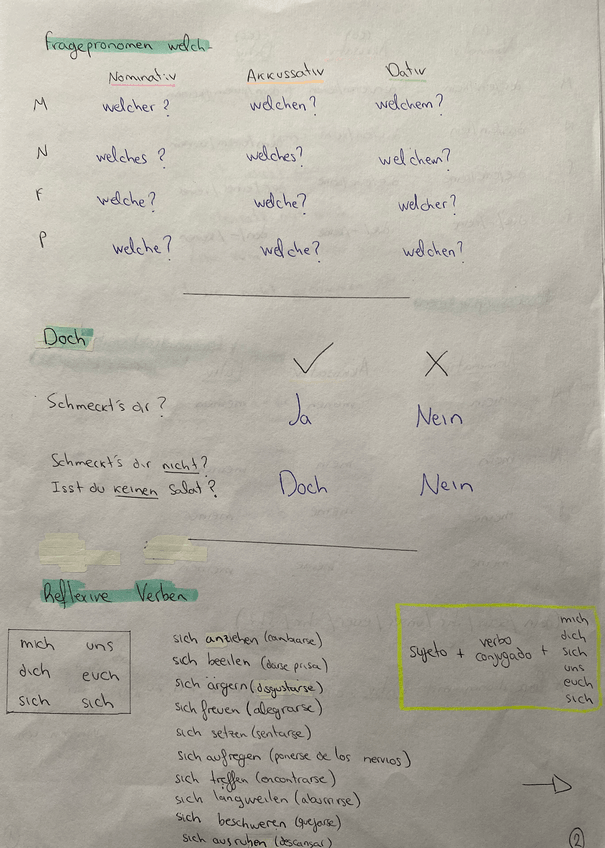 Fragepronomen welch-
Nominativ Akkussativ Dativ
M welcher? welchen? welchem?
N welches? welches? welchem?
F welche? welche? welcher?
P welche? welche? welchen?
Doch
✓ X
Schmeckt's dir? Ja Nein
Schmeckt's dir nicht?
Isst du keinen Salat? Doch Nein
Reflexive Verben
mich uns
dich euch
sich sich
sich anziehen (cambiarse)
sich beeilen (darse prisa)
sich ärgern (disgustarse)
sich freuen (alegrarse)
sich setzen (sentarse)
sich aufregen (ponerse de los nervios)
sich treffen (encontrarse)
sich langweilen (aburrirse)
sich beschweren (quejarse)
sich ausruhen (descansar)
sujeto + verbo conjugado +
mich
dich
sich
uns
euch
sich
2